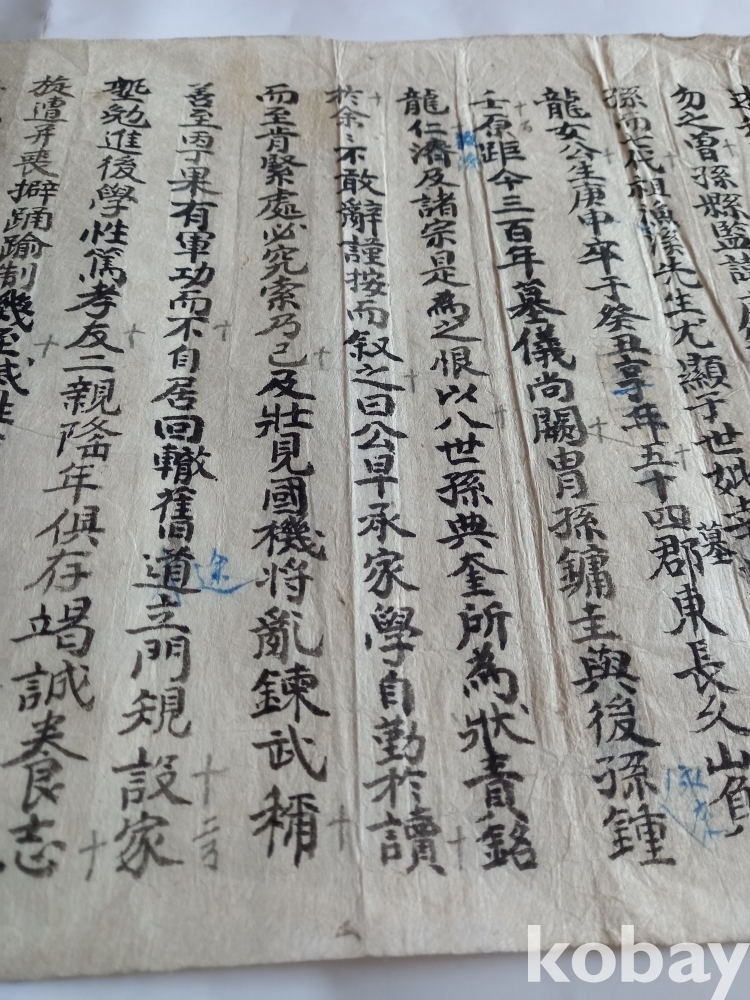 勿之曾孫縣監
孫而七代祖漁隱先生尤顯于世妣
龍女公生庚申卒于癸丑享年五十四郡東長久山負
壬原距今三百年墓儀尚闕胄孫鏞圭與後孫鍾
龍仁濟及諸宗是為之恨以八世孫典奎所為狀責銘
於余余不敢辭謹按而叙之曰公早承家學自勤於讀
而至肯緊處必究索乃已及壯見國機將亂鍊武稱
善至丙丁果有軍功而不自居回轍舊道立門規設家
塾勉進後學性篤孝友二親隆年俱存竭誠養志
旋遭并喪擗踊踰制幾至滅性
墓
途
十
kobay